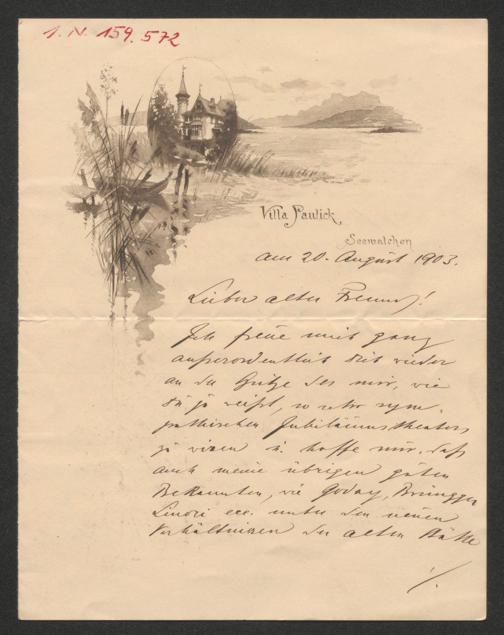 I. N. 159.572
Villa Paulick
Seewalchen
am 20. August 1903.
Lieber alter Freund!
Ich freue mich ganz
außerordentlich Dich wieder
an der Spitze des mir, wie
Du ja weißt, so sehr sym-
pathischen Jubiläumstheaters
zu wissen u. hoffe nur, daß
auch meine übrigen guten
Bekannten, wie Goday,
etc. unter den neuen
Verhältnissen der alten Stätte